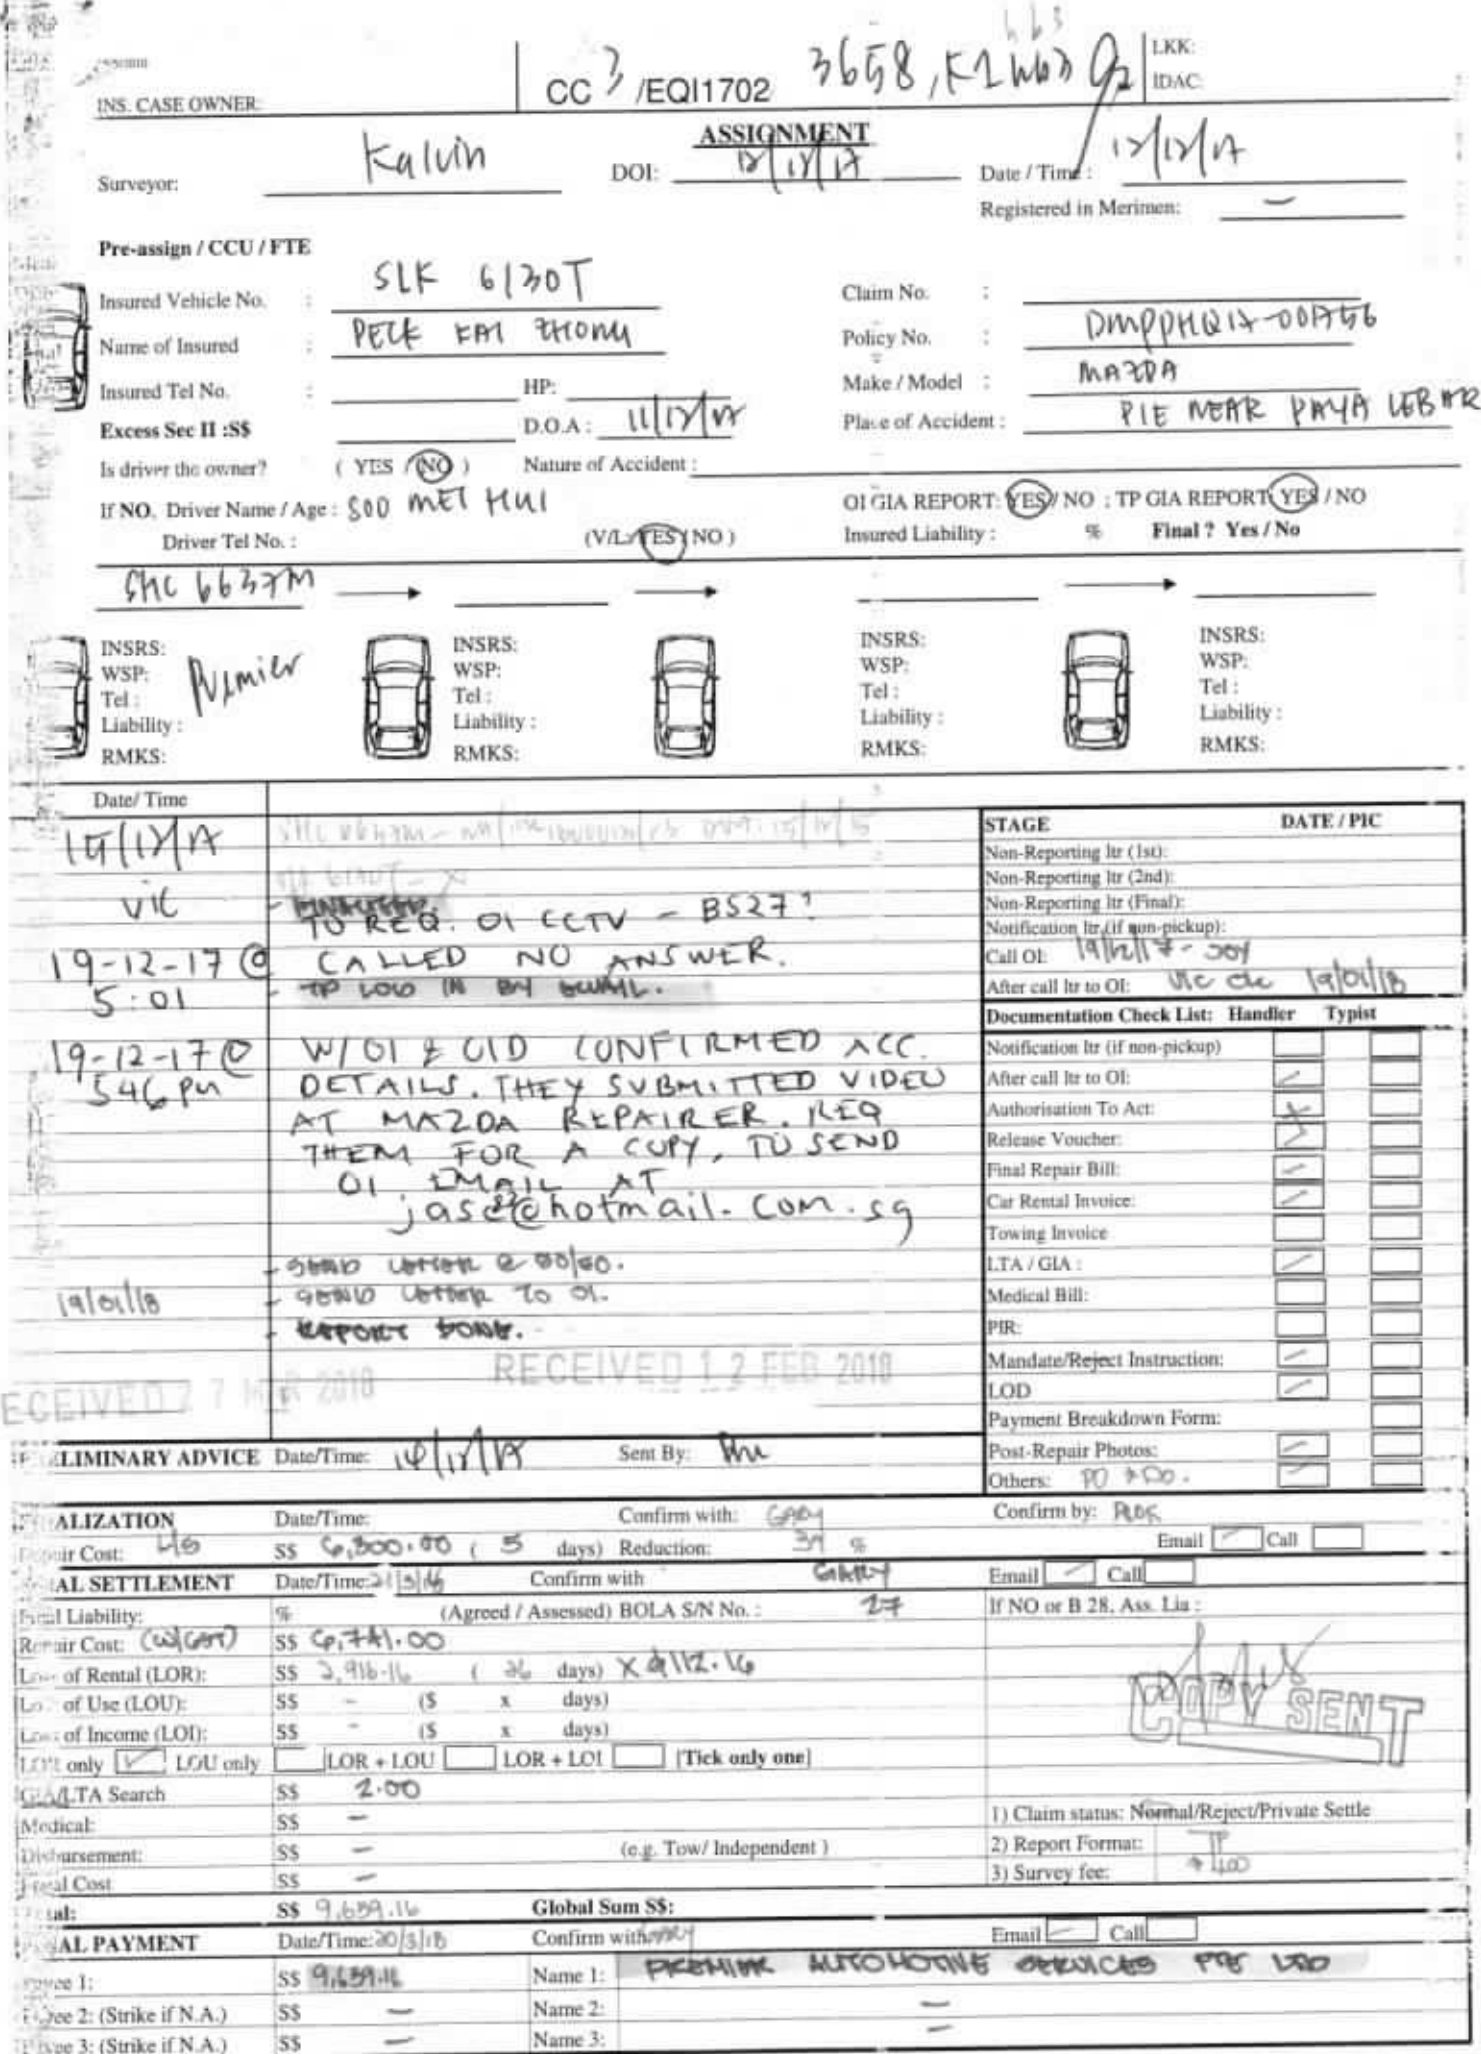 INS. CASE OWNER:
CC 3 /EQI1702
LKK:
IDAC:
ASSIGNMENT
Surveyor: Kalvin DOI: 12/12/17 Date / Time : 12/12/17
Registered in Merimen: –
Pre-assign / CCU / FTE
Insured Vehicle No. : SLK 6130T Claim No. :
Name of Insured : PECK KAI ZHONG Policy No. :
Insured Tel No. : HP: Make / Model : MAZDA
Excess Sec II :S$ D.O.A : 11/12/17 Place of Accident : PIE NEAR PAYA LEBAR
Is driver the owner? ( YES / NO ) Nature of Accident :
If NO, Driver Name / Age : SOO MEI HUI OI GIA REPORT: YES / NO : TP GIA REPORT: YES / NO
Driver Tel No. : (V/L: YES / NO ) Insured Liability : % Final ? Yes / No
SHC 6637M
INSRS: INSRS: INSRS: INSRS:
WSP: Premier WSP: WSP: WSP:
Tel : Tel : Tel : Tel :
Liability : Liability : Liability : Liability :
RMKS: RMKS: RMKS: RMKS:
Date/ Time
15/12/17
VIC
TO REQ. OI CCTV - BS27?
19-12-17 @ CALLED NO ANSWER.
5:01 - TP LOD IN BY EMAIL.
19-12-17 @ W/ OI & OID CONFIRMED ACC.
546 PM DETAILS. THEY SUBMITTED VIDEO
AT MAZDA REPAIRER. REQ
THEM FOR A COPY, TO SEND
OI EMAIL AT
hotmail.com.sg
19/01/18 - SEND LETTER TO OI.
- REPORT DONE.
RECEIVED 12 FEB 2018
ECEIVED 27 MAR 2018
STAGE DATE / PIC
Non-Reporting ltr (1st):
Non-Reporting ltr (2nd):
Non-Reporting ltr (Final):
Notification ltr (if non-pickup):
Call OI: 19/12/17 - JOY
After call ltr to OI: VIC 19/01/18
Documentation Check List: Handler Typist
Notification ltr (if non-pickup)
After call ltr to OI:
Authorisation To Act:
Release Voucher:
Final Repair Bill:
Car Rental Invoice:
Towing Invoice
LTA / GIA :
Medical Bill:
PIR:
Mandate/Reject Instruction:
LOD
Payment Breakdown Form:
Post-Repair Photos:
Others:
LIMINARY ADVICE Date/Time: 14/12/17 Sent By:
ALIZATION Date/Time: Confirm with: GARY Confirm by:
Cost: S$ 6,300.00 ( 5 days) Reduction: % Email Call
AL SETTLEMENT Date/Time: Confirm with GARY Email Call
Liability: % (Agreed / Assessed) BOLA S/N No. : 27 If NO or B 28, Ass. Lia :
Repair Cost: (W/GST) S$ 6,741.00
of Rental (LOR): S$ 2,916.16 ( 26 days) X $112.16
of Use (LOU): S$ – ($ x days)
of Income (LOI): S$ – ($ x days)
only LOU only LOR + LOU LOR + LOI [Tick only one]
COPY SENT
GIA/LTA Search S$ 2.00
Medical: S$ –
Disbursement: S$ – (e.g. Tow/ Independent )
Cost S$ –
S$ 9,659.16 Global Sum S$:
1) Claim status: Normal/Reject/Private Settle
2) Report Format: TP
3) Survey fee:
AL PAYMENT Date/Time: 20/3/18 Confirm with: GARY Email Call
1: S$ 9,659.16 Name 1: PREMIER AUTOMOTIVE SERVICES PTE LTD
2: (Strike if N.A.) S$ – Name 2: –
3: (Strike if N.A.) S$ – Name 3: –